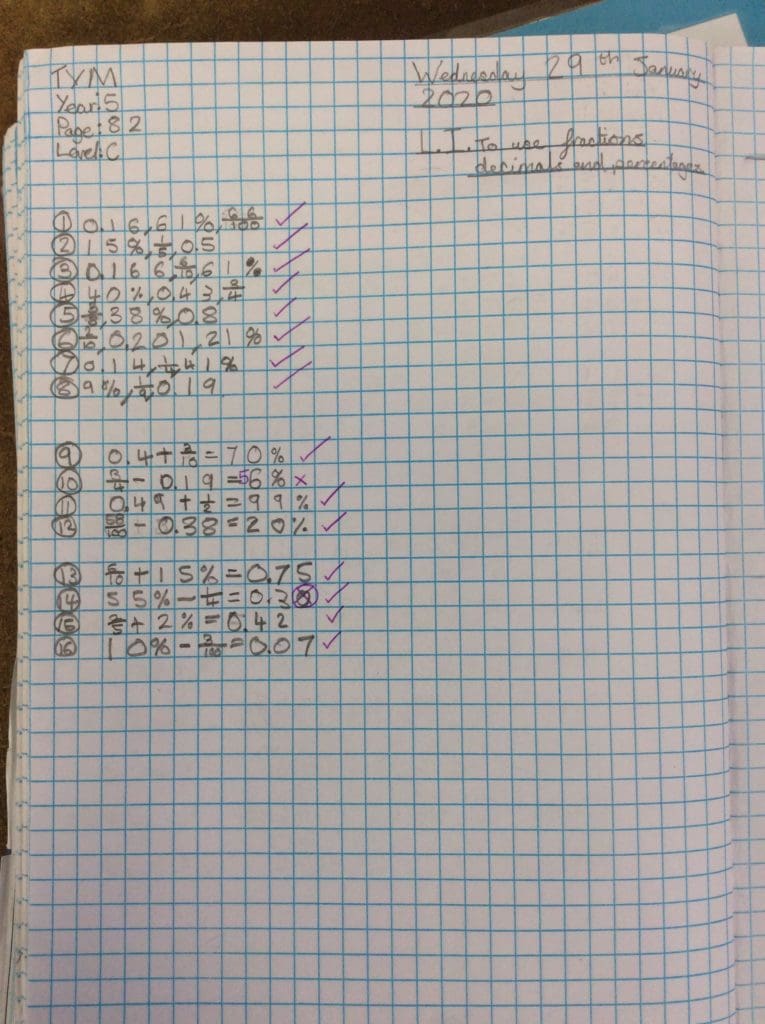 TYM
Year: 5
Page: 82
Level: C
Wednesday 29th January
2020
L.I. To use fractions
decimals and percentages
① 0.16, 61%, 66/100 ✓
② 15%, 1/5, 0.5 ✓
③ 0.166, 6/10, 61% ✓
④ 40%, 0.43, 3/4 ✓
⑤ 38%, 0.8 ✓
⑥ 2/10, 0.201, 21% ✓
⑦ 0.14, 1/4, 41% ✓
⑧ 9%, 1/9, 0.19 ✓
⑨ 0.4 + 3/10 = 70% ✓
⑩ 3/4 - 0.19 = 56% ×
⑪ 0.49 + 1/2 = 99% ✓
⑫ 58/100 - 0.38 = 20% ✓
⑬ 6/10 + 15% = 0.75 ✓
⑭ 55% - 1/4 = 0.3 ✓
⑮ 2/5 + 2% = 0.42 ✓
⑯ 10% - 3/100 = 0.07 ✓